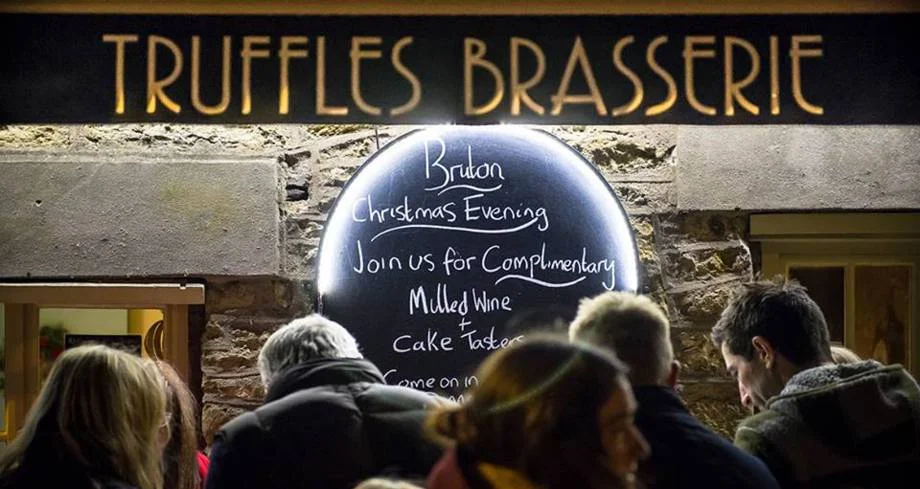 TRUFFLES BRASSERIE
Bruton
Christmas Evening
Join us for Complimentary
Mulled Wine
+
Cake Tasters
Come on in